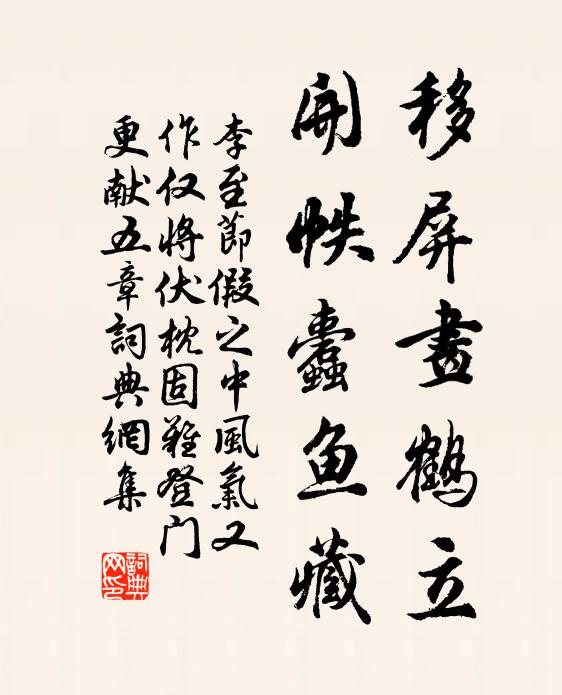 移屏畫鶴立
開帙蠹鱼藏
李至節假之中風氣又
作仅將伏枕固難登门
更献五章詞典網集
詞典网印